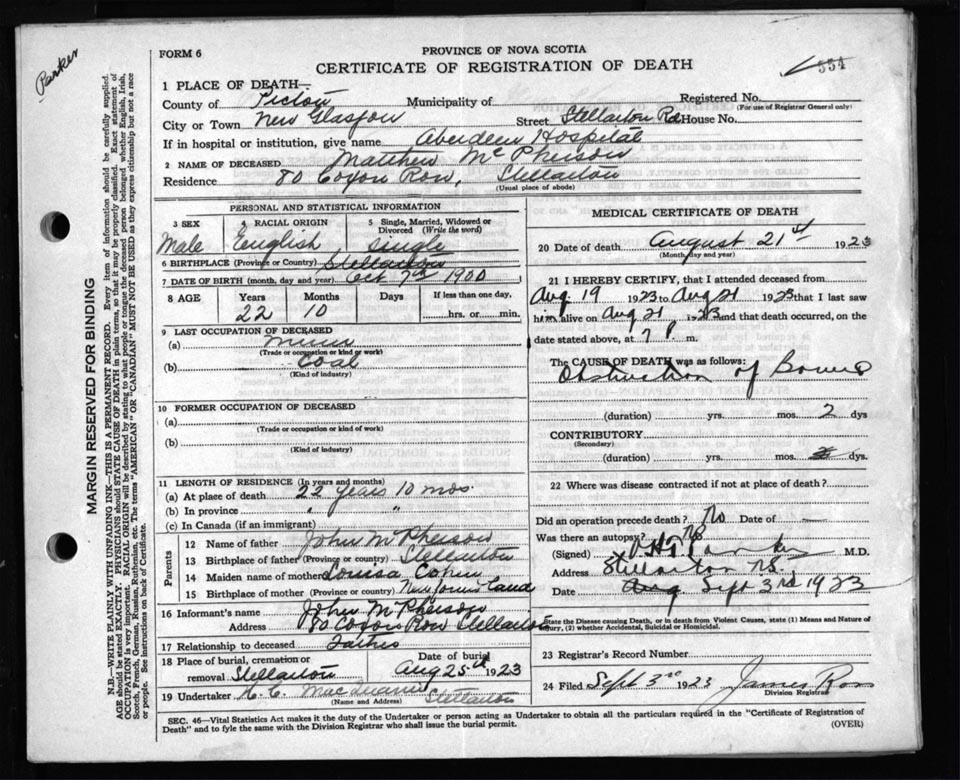 Parker
FORM 6
PROVINCE OF NOVA SCOTIA
CERTIFICATE OF REGISTRATION OF DEATH
554
1 PLACE OF DEATH—
County of Pictou Municipality of Registered No.
(For use of Registrar General only)
City or Town New Glasgow Street Stellarton Rd House No.
If in hospital or institution, give name Aberdeen Hospital
2 NAME OF DECEASED Matthew McPherson
Residence 80 Coxon Row, Stellarton
(Usual place of abode)
PERSONAL AND STATISTICAL INFORMATION
3 SEX 4 RACIAL ORIGIN 5 Single, Married, Widowed or Divorced (Write the word)
Male English single
6 BIRTHPLACE (Province or Country) Stellarton
7 DATE OF BIRTH (month, day and year) Oct 7th 1900
8 AGE Years Months Days If less than one day,
22 10 hrs. or min.
9 LAST OCCUPATION OF DECEASED
(a) Miner
(Trade or occupation or kind of work)
(b) Coal
(Kind of industry)
10 FORMER OCCUPATION OF DECEASED
(a)
(Trade or occupation or kind of work)
(b)
(Kind of industry)
11 LENGTH OF RESIDENCE (In years and months)
(a) At place of death 22 years 10 mos.
(b) In province " "
(c) In Canada (if an immigrant)
Parents
12 Name of father John McPherson
13 Birthplace of father (Province or country) Stellarton
14 Maiden name of mother Louisa
15 Birthplace of mother (Province or country) Newfoundland
16 Informant's name John McPherson
Address 80 Coxon Row Stellarton
17 Relationship to deceased Father
18 Place of burial, cremation or removal Stellarton Date of burial Aug 25th 1923
19 Undertaker Stellarton
(Name and Address)
MEDICAL CERTIFICATE OF DEATH
20 Date of death August 21st 1923
(Month, day and year)
21 I HEREBY CERTIFY, that I attended deceased from
Aug 19 1923 to Aug 21 1923 that I last saw
him alive on Aug 21 1923 and that death occurred, on
date stated above, at 7 P. m.
The CAUSE OF DEATH was as follows:
Obstruction of Bowel
(duration) yrs. mos. 2 dys
CONTRIBUTORY
(Secondary)
(duration) yrs. mos. dys.
22 Where was disease contracted if not at place of death?
Did an operation precede death? No Date of —
Was there an autopsy? No
(Signed) Parker M.D.
Address Stellarton NS.
Date Aug Sept 3rd 1923
State the Disease causing Death, or in death from Violent Causes, state (1) Means and Nature of Injury, (2) whether Accidental, Suicidal or Homicidal.
23 Registrar's Record Number
24 Filed Sept 3rd 1923 James Ross
Division Registrar
SEC. 46—Vital Statistics Act makes it the duty of the Undertaker or person acting as Undertaker to obtain all the particulars required in the "Certificate of Registration of
Death" and to fyle the same with the Division Registrar who shall issue the burial permit. (OVER)
MARGIN RESERVED FOR BINDING
N.B—WRITE PLAINLY WITH UNFADING INK—THIS IS A PERMANENT RECORD. Every item of information should be carefully supplied.
AGE should be stated EXACTLY. PHYSICIANS should STATE CAUSE OF DEATH in plain terms, so that it may be properly classified. Exact statement of
OCCUPATION is very important. RACIAL ORIGIN will be described by stating to what people or tongue the deceased person belonged whether English, Irish,
Scotch, French, German, Russian, Ruthenian, etc. The terms "AMERICAN" OR "CANADIAN" MUST NOT BE USED as they express citizenship but not a race
or people. See instructions on back of Certificate.